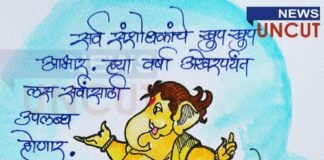 NEWS
UNCUT
सर्व संशोधकांचे खूप खूप
आभार. ह्या वर्षा अखेरपर्यंत
लस सर्वांसाठी
उपलब्ध
होणार.